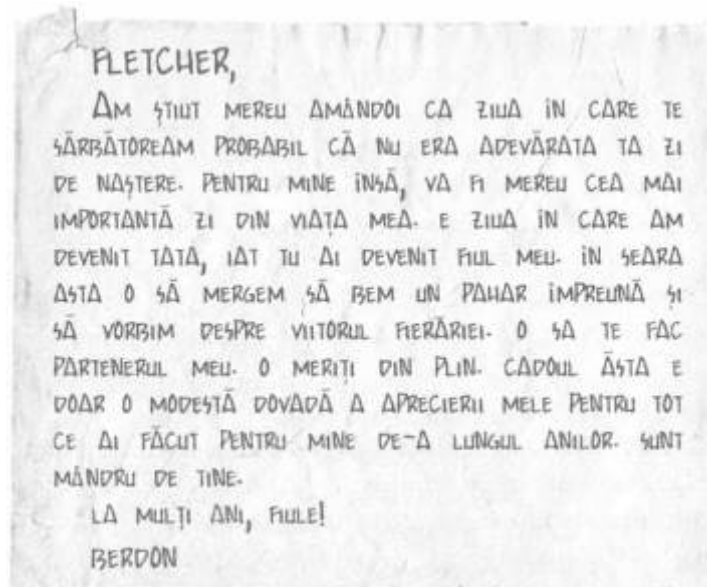 FLETCHER,
AM ȘTIUT MEREU AMÂNDOI CA ZIUA ÎN CARE TE
SĂRBĂTOREAM PROBABIL CĂ NU ERA ADEVĂRATA TA ZI
DE NAȘTERE. PENTRU MINE ÎNSĂ, VA FI MEREU CEA MAI
IMPORTANTĂ ZI DIN VIAȚA MEA. E ZIUA ÎN CARE AM
DEVENIT TATĂ, IAT TU AI DEVENIT FIUL MEU. ÎN SEARA
ASTA O SĂ MERGEM SĂ BEM UN PAHAR ÎMPREUNĂ ȘI
SĂ VORBIM DESPRE VIITORUL FIERĂRIEI. O SA TE FAC
PARTENERUL MEU. O MERIȚI DIN PLIN. CADOUL ĂSTA E
DOAR O MODESTĂ DOVADĂ A APRECIERII MELE PENTRU TOT
CE AI FĂCUT PENTRU MINE DE-A LUNGUL ANILOR. SUNT
MÂNDRU DE TINE.
LA MULȚI ANI, FIULE!
BERDON